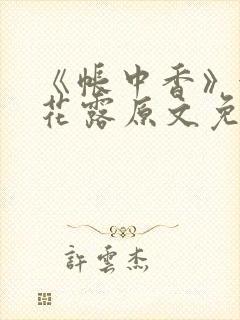 《帐中香》
花露原文免
許雲杰